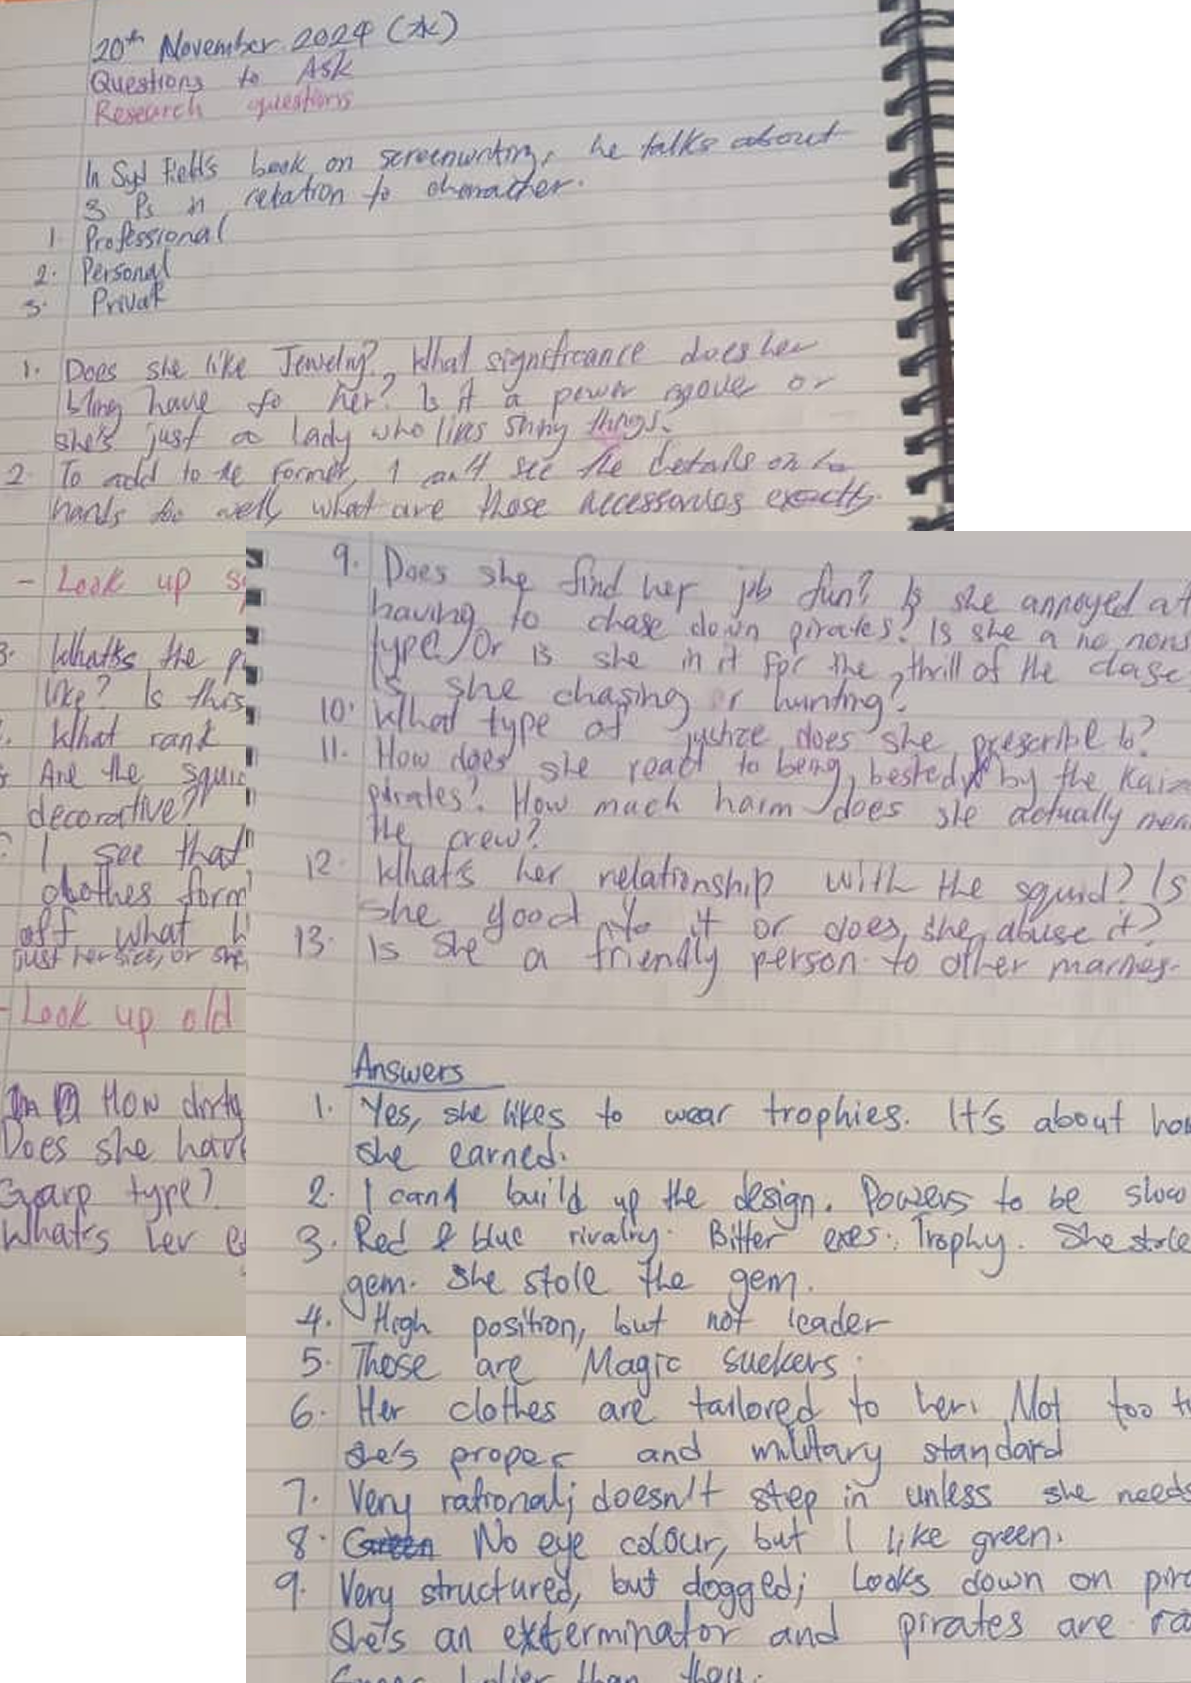 20th November 2024 (水)
Questions to Ask
Research questions
In Syd Field's book on screenwriting, he talks about
3 Ps in relation to character.
1. Professional
2. Personal
3. Privat
1. Does she like Jewelry? What significance does her
bling have to her? Is it a power move or
she's just a lady who likes shiny things.
2. To add to the former, I can't see the details on
hands too well, what are those accessories exactly.
- Look up
3. What's the
like? Is this
What rank
Are the squid
decorative?
I see that
clothes form
off what
just her size, or she
- Look up old
How dirty
Does she have
Garp type?
What's her
9. Does she find her job fun? Is she annoyed at
having to chase down pirates? Is she a no nons
type? Or is she in it for the thrill of the chase
Is she chasing or hunting?
10. What type of justice does she prescribe to?
11. How does she react to being bested by the Kaiz
pirates? How much harm does she actually mean
the crew?
12. What's her relationship with the squid? Is
she good to it or does she abuse it?
13. Is she a friendly person to other marines.
Answers
1. Yes, she likes to wear trophies. It's about how
she earned.
2. I can build up the design. Powers to be slow
3. Red & blue rivalry. Bitter exes. Trophy. She stole
gem. She stole the gem.
4. High position, but not leader
5. Those are Magic suckers.
6. Her clothes are tailored to her. Not too
she's proper and military standard
7. Very rational; doesn't step in unless she needs
8. Green No eye colour, but I like green.
9. Very structured, but dogged; Looks down on
She's an exterminator and pirates are
holier than thou.